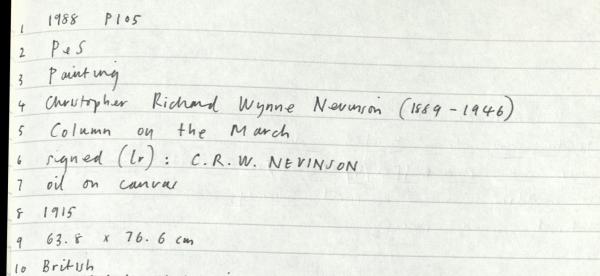 1 1988 P105
2 P&S
3 Painting
4 Christopher Richard Wynne Nevinson (1889-1946)
5 Column on the March
6 signed (lr): C.R.W. NEVINSON
7 oil on canvas
8 1915
9 63.8 x 76.6 cm
10 British